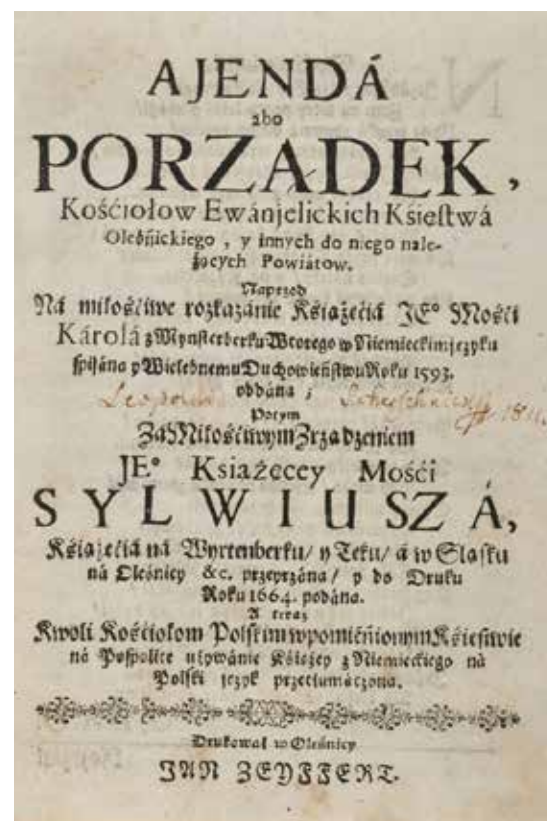 AJENDÁ
abo
PORZĄDEK,
Kośćiołow Ewánjelickich Kśięstwá
Oleśńickiego, y innych do niego nale-
żących Powiátow.
Naprzod
Ná miłośćiwe rozkazánie Kśiążęćiá JEº Mośći
Károlá z Mynsterberku Wtorego w Niemieckim języku
spisána y Wielebnemu Duchowieństwu Roku 1593.
oddána;
Leopold 1811.
Potym
Zá Miłośćiwym Zrządzeniem
JEº Kśiążęcey Mośći
SYLWIUSZÁ,
Kśiążęćiá ná Wyrtenberku/ y Teku/ á w Sląsku
ná Oleśnicy &c. przeyrzána/ y do Druku
Roku 1664. podána.
A teraz
Kwoli Kośćiołom Polskim w pomieńionym Kśięstwie
ná Pospolite używánie Kśięży z Niemieckiego ná
Polski język przetłumáczona.
Drukował w Oleśnicy
JAN ZEYFFERT.